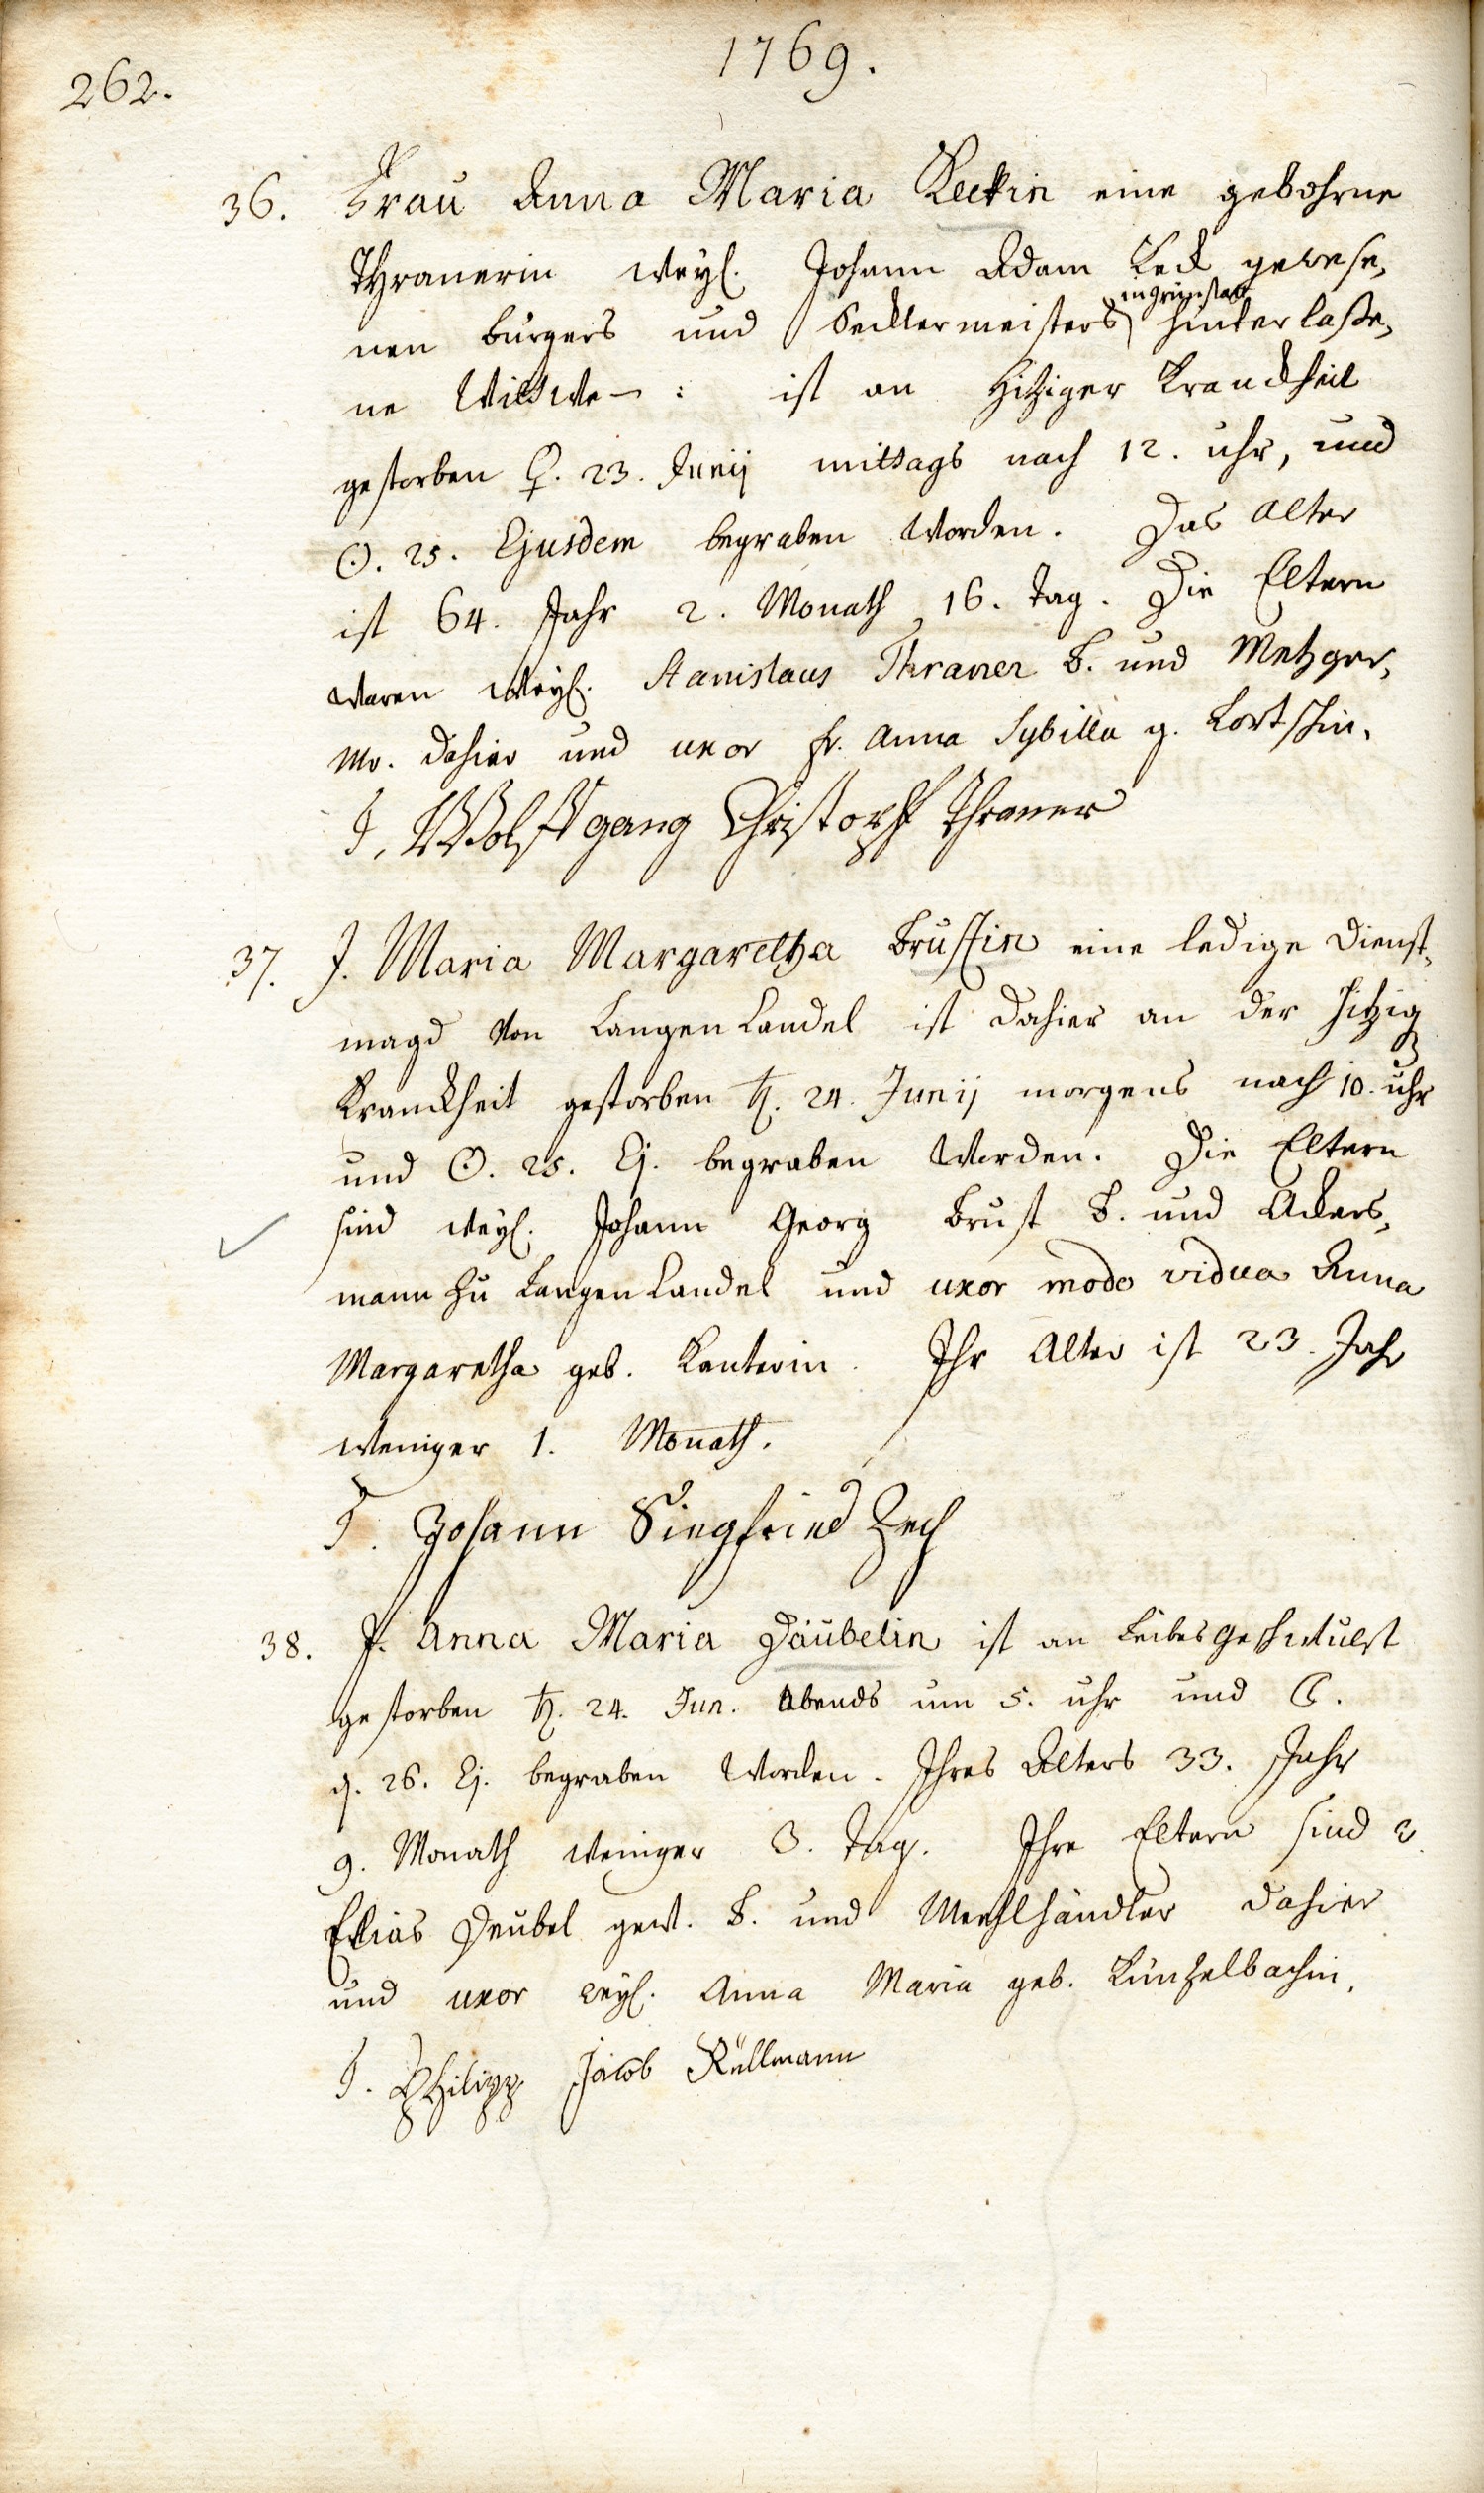 1769.
262.
36. Frau Anna Maria Keckin eine gebohrne
Thranerin weyl. Johann Adam Keck gewese„
nen burgers und Secklermeisters in Grünstatt hinterlaße„
ne Wittwe : ist an hitziger Kranckheit
gestorben ♀. 23. Junij mittags nach 12. uhr, und
☉. 25. Ejusdem begraben worden. Das alter
ist 64. Jahr 2. Monath 16. tag. Die Eltern
waren weyl. Stanislaus Thraner B. und Metzger„
mr. dahier und uxor fr. Anna Sybilla g.
T. Wolffgang Christoph Thraner
37. J. Maria Margaretha Brustin eine ledige dienst„
magd von Langen Candel ist dahier an der hitzig
Kranckheit gestorben ♄. 24. Junij morgens nach 10. uhr
und ☉. 25. Ej. begraben worden. Die Eltern
sind weyl. Johann Georg Brust B. und Ackers„
mann zu Langen Candel und uxor modo vidua Anna
Margaretha geb. Kanterin. Ihr Alter ist 23. Jahr
weniger 1. Monath.
T. Johann Siegfried Zech
38. J. Anna Maria Däubelin ist an Leibesgeschwulst
gestorben ♄. 24. Jun. Abends um 5. uhr und ☾.
d. 26. Ej. begraben worden. Ihres Alters 33. Jahr
9. Monath weniger 3. tag. Ihre Eltern sind
Elias Deubel gew. B. und Meehlhändler dahier
und uxor weyl. Anna Maria geb. Künzelbachin.
T. Philipp Jacob Rüllmann